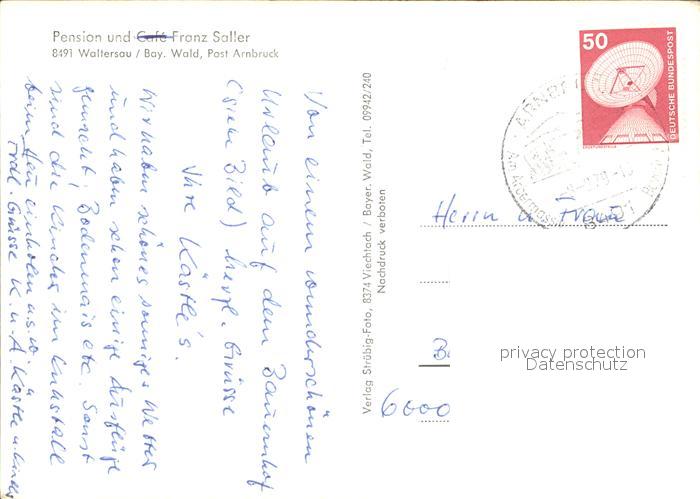 Pension und Café Franz Saller
8491 Waltersau / Bay. Wald, Post Arnbruck
Von einem wunderschönen
Urlaub auf dem Bauernhof
(siehe Bild) herzl. Grüsse
Ihre Kästle's.
Wir haben schönes sonniges Wetter
und haben schon einige Ausflüge
gemacht, Bodenmais etc. Sonst
sind die Kinder im Kuhstall
beim Heu einholen u.s.w.
Frdl. Grüsse K. u. A. Kästle u. Kinder
Verlag Ströbig-Foto, 8374 Viechtach / Bayer. Wald, Tel. 09942/240
Nachdruck verboten
50
DEUTSCHE BUNDESPOST
ARNBRUCK
8491
Herrn u. Frau
privacy protection
Datenschutz
6000